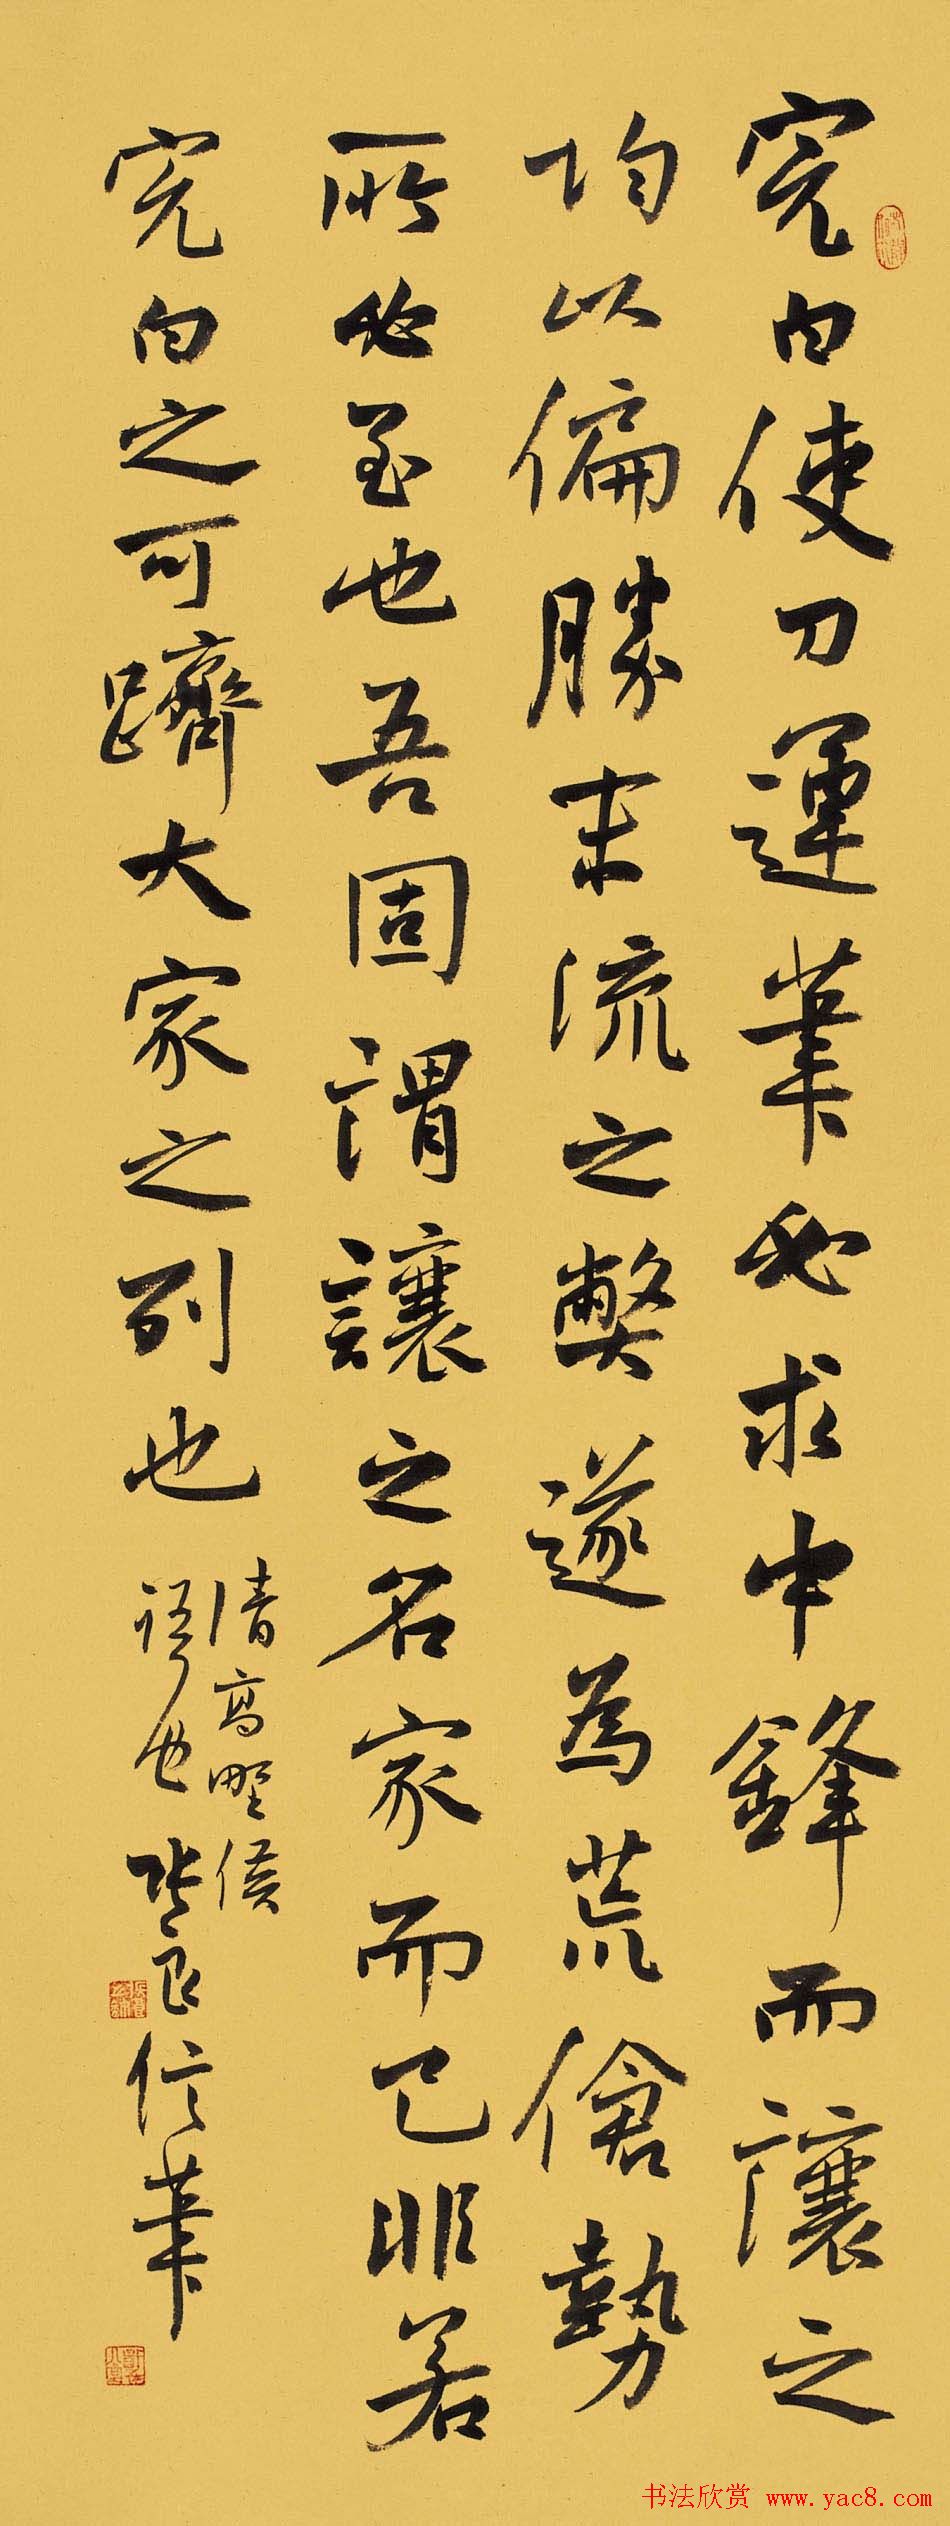 完白使刀運筆必求中鋒而讓之
均以偏勝末流之弊遂為荒傖勢
所必至也吾固謂讓之名家而已非若
完白之可躋大家之列也
清高野侯
語也 張良信筆
书法欣赏 www.yac8.com